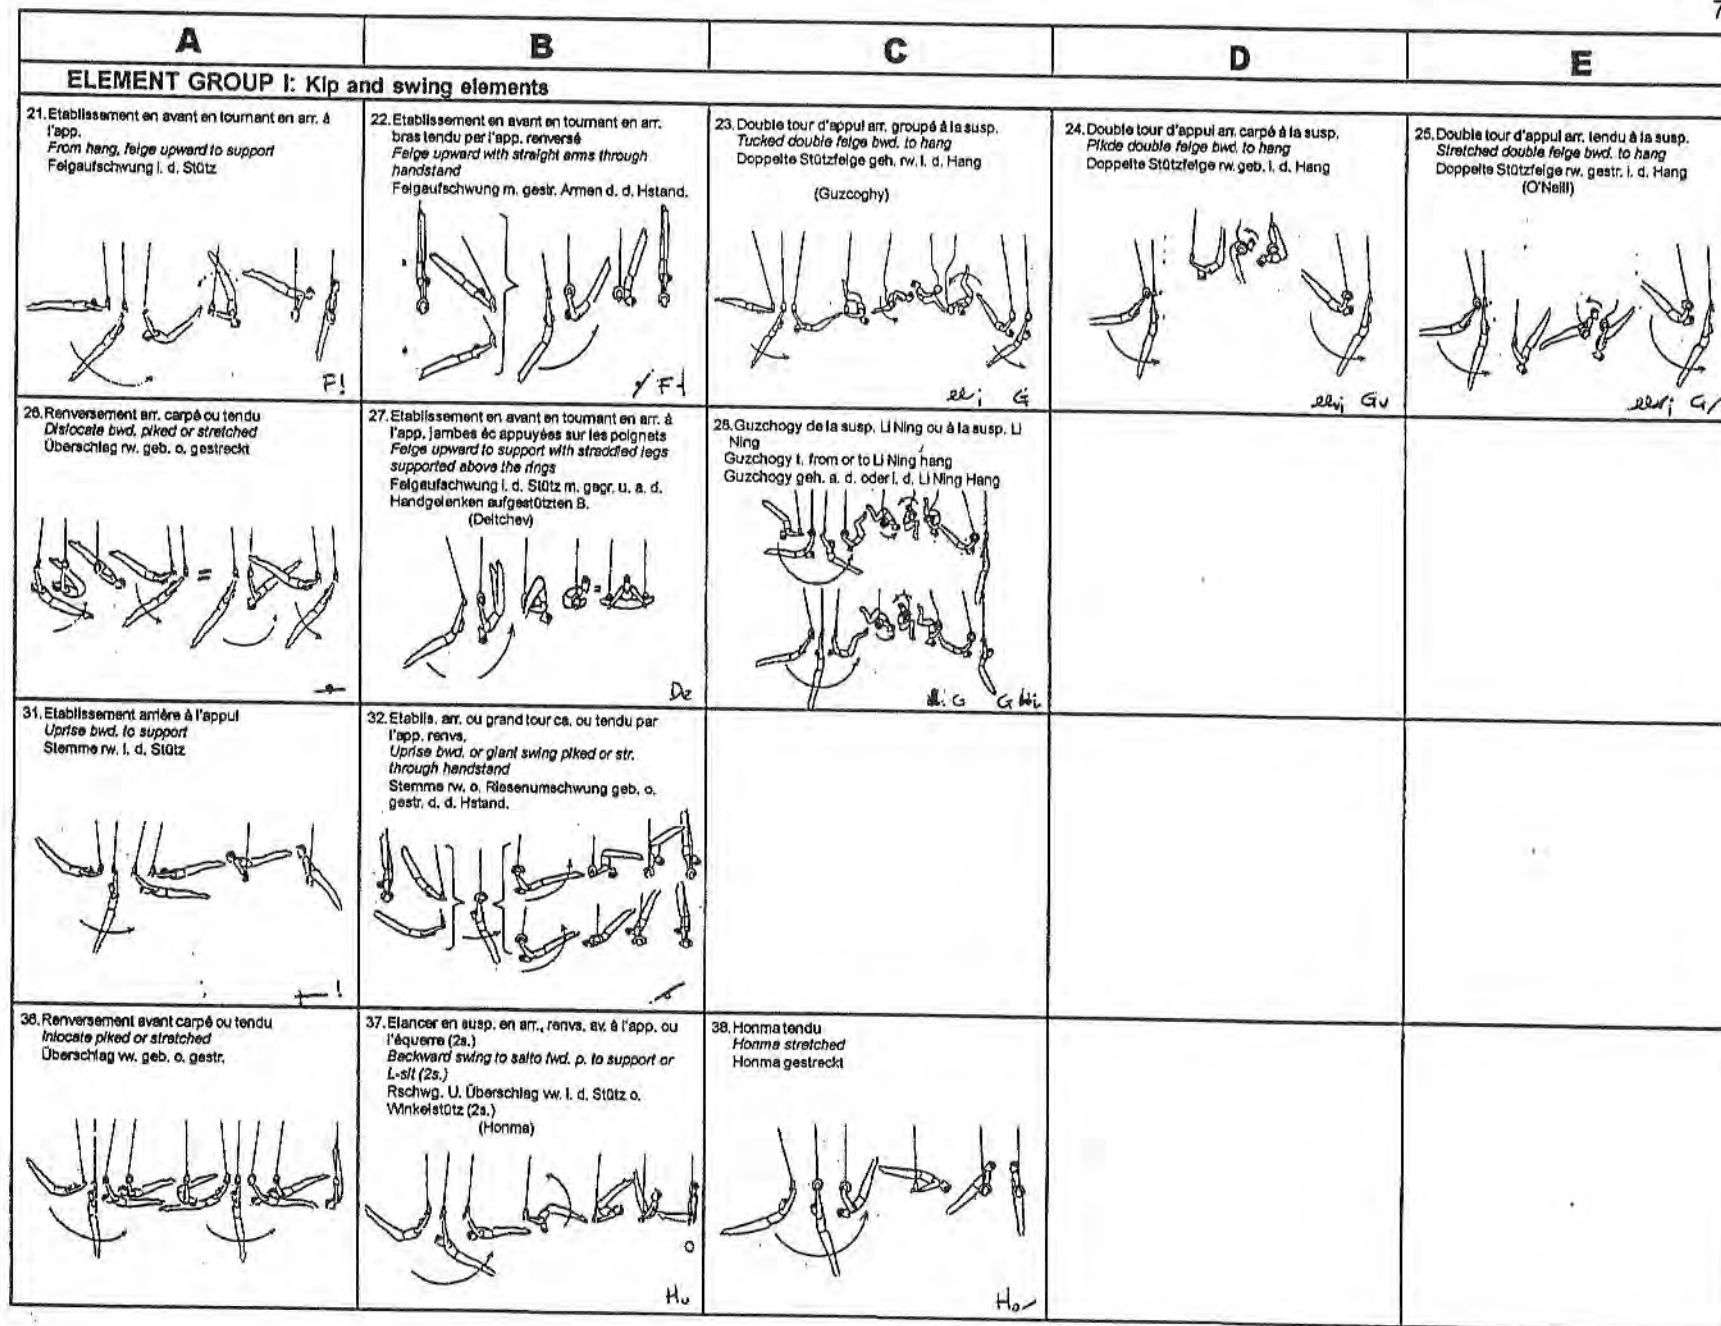 7
A
B
C
D
E
ELEMENT GROUP I: Kip and swing elements
21. Etablissement en avant en tournant en arr. à
l'app.
From hang, felge upward to support
Felgaufschwung i. d. Stütz
F!
22. Etablissement en avant en tournant en arr.
bras tendu par l'app. renversé
Felge upward with straight arms through
handstand
Felgaufschwung m. gestr. Armen d. d. Hstand.
23. Double tour d'appui arr. groupé à la susp.
Tucked double felge bwd. to hang
Doppelte Stützfelge geh. rw. i. d. Hang
(Guzcoghy)
G
24. Double tour d'appui arr. carpé à la susp.
Pikde double felge bwd. to hang
Doppelte Stützfelge rw. geb. i. d. Hang
Gv
25. Double tour d'appui arr. tendu à la susp.
Stretched double felge bwd. to hang
Doppelte Stützfelge rw. gestr. i. d. Hang
(O'Neill)
G/
26. Renversement arr. carpé ou tendu
Dislocate bwd. piked or stretched
Überschlag rw. geb. o. gestreckt
=
27. Etablissement en avant en tournant en arr. à
l'app. jambes éc appuyées sur les poignets
Felge upward to support with straddled legs
supported above the rings
Felgaufschwung i. d. Stütz m. gegr. u. a. d.
Handgelenken aufgestützten B.
(Deltchev)
=
De
28. Guzchogy de la susp. Li Ning ou à la susp. Li
Ning
Guzchogy t. from or to Li Ning hang
Guzchogy geh. a. d. oder i. d. Li Ning Hang
G
G
31. Etablissement arrière à l'appui
Uprise bwd. to support
Stemme rw. i. d. Stütz
32. Etablis. arr. ou grand tour ca. ou tendu par
l'app. renvs.
Uprise bwd. or giant swing piked or str.
through handstand
Stemme rw. o. Riesenumschwung geb. o.
gestr. d. d. Hstand.
36. Renversement avant carpé ou tendu
Inlocate piked or stretched
Überschlag vw. geb. o. gestr.
37. Elancer en susp. en arr., renvs. av. à l'app. ou
l'équerre (2s.)
Backward swing to salto fwd. p. to support or
L-sit (2s.)
Rschwg. U. Überschlag vw. i. d. Stütz o.
Winkelstütz (2s.)
(Honma)
Ho
38. Honma tendu
Honma stretched
Honma gestreckt
Ho/